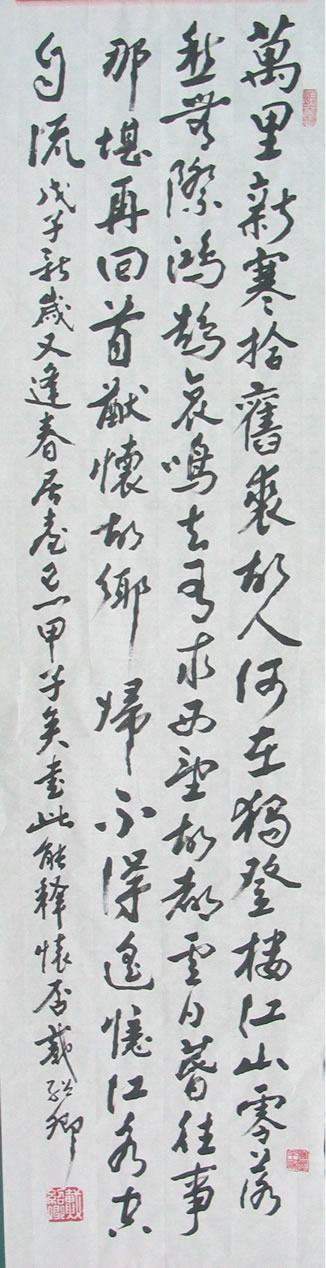 萬里新寒拾舊裘故人何在獨登樓江山零落
愁無際鴻鵠哀鳴去有求西望故都雲日暮往事
那堪再回首猷懷故鄉歸不得遙憶江水空
自流戊子新歲又逢春居臺已一甲子矣書此能釋懷否戴紹卿